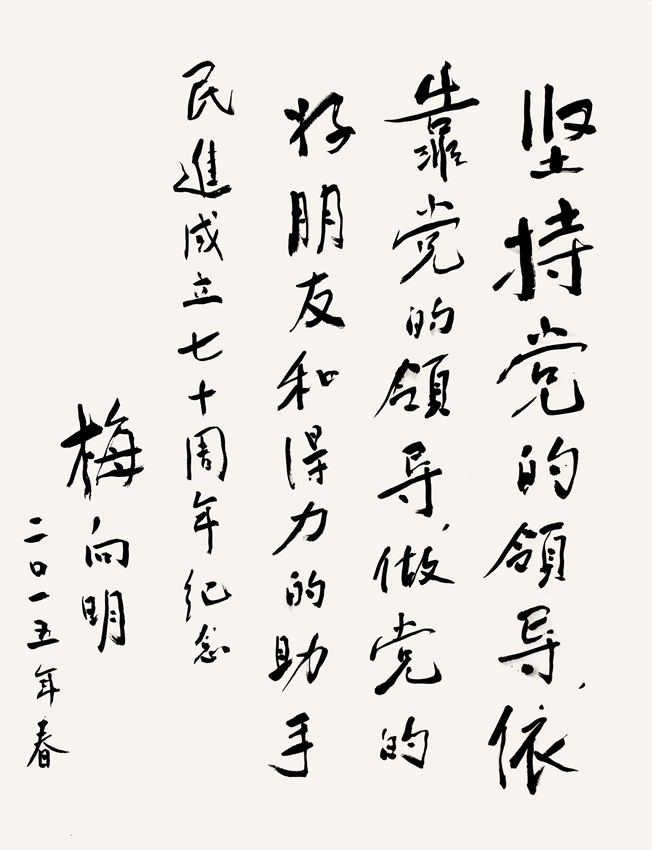 坚持党的领导，依
靠党的领导，做党的
好朋友和得力的助手
民進成立七十周年纪念
梅向明
二〇一五年春